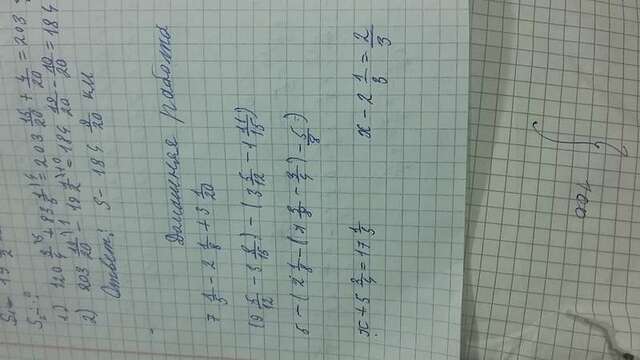 S₁ - 19 1/2
S₂ - ?
1) 120 3/4 + 83 1/5 = 203 15/20 + 4/20 = 203
2) 203 19/20 - 19 1/2 = 184 19/20 - 10/20 = 184
Ответ: S - 184 9/20 км
Домашняя работа
7 1/5 - 2 1/8 + 3 1/20
(9 5/12 - 3 8/15) - (3 5/12 - 1 11/15)
5 - (2 1/8 - (1 3/8 - 3/4) - 5/8)
x + 5 3/4 = 17 1/5
x - 2 1/3 = 2/3
100